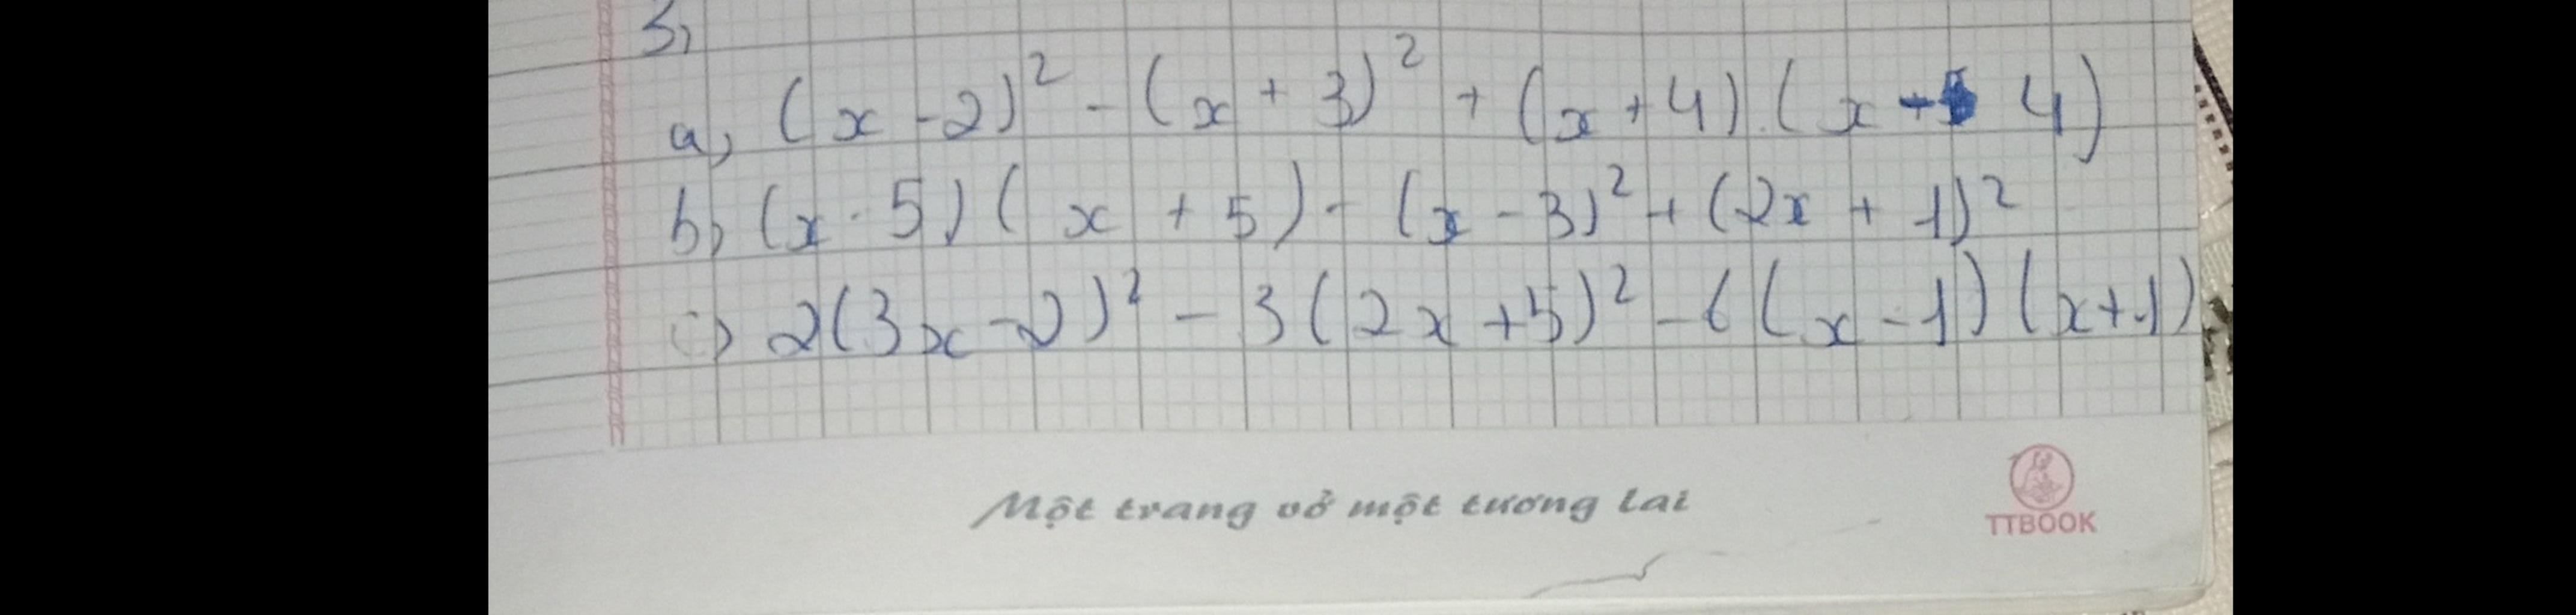 3,
a, (x - 2)² - (x + 3)² + (x + 4).(x - 4)
b, (x - 5)(x + 5) - (x - 3)² + (2x + 1)²
c, 2(3x - 2)² - 3(2x + 5)² - 6(x - 1)(x + 1)
Một trang vở một tương lai
TTBOOK